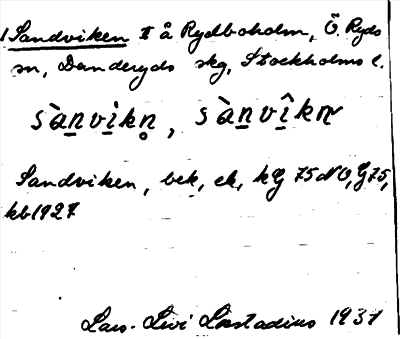 1 Sandviken II å Rydboholm, Ö. Ryds
sn, Danderyds skg, Stockholms l.
sàṉvìkn̥, sàṉvî̱kn
Sandviken, bek, ek, kG 75 NO, G 75,
kb 1927
Lars-Levi Læstadius 1931